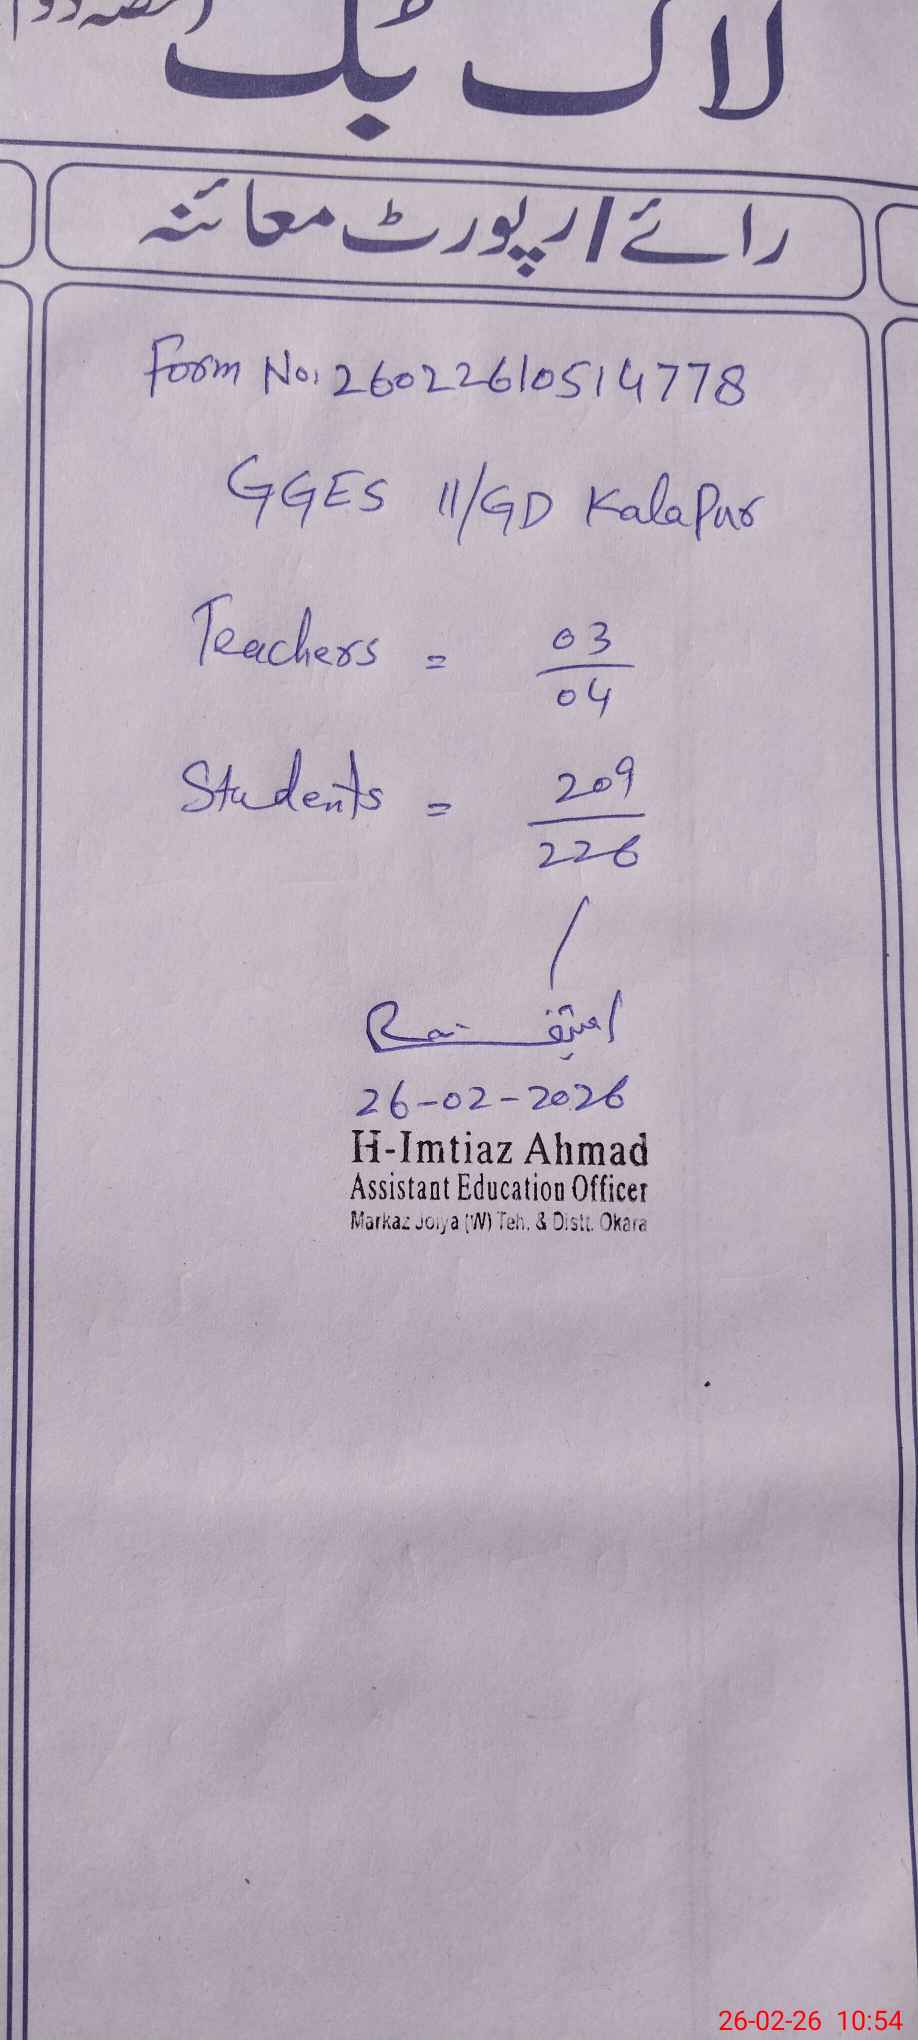 لاگ بک
رائے / رپورٹ معائنہ
Form No: 26022610514778
GGES 11/GD Kalapur
Teachers = 03
04
Students = 209
226
26-02-2026
H-Imtiaz Ahmad
Assistant Education Officer
Markaz Joiya (W) Teh. & Distt. Okara
26-02-26 10:54